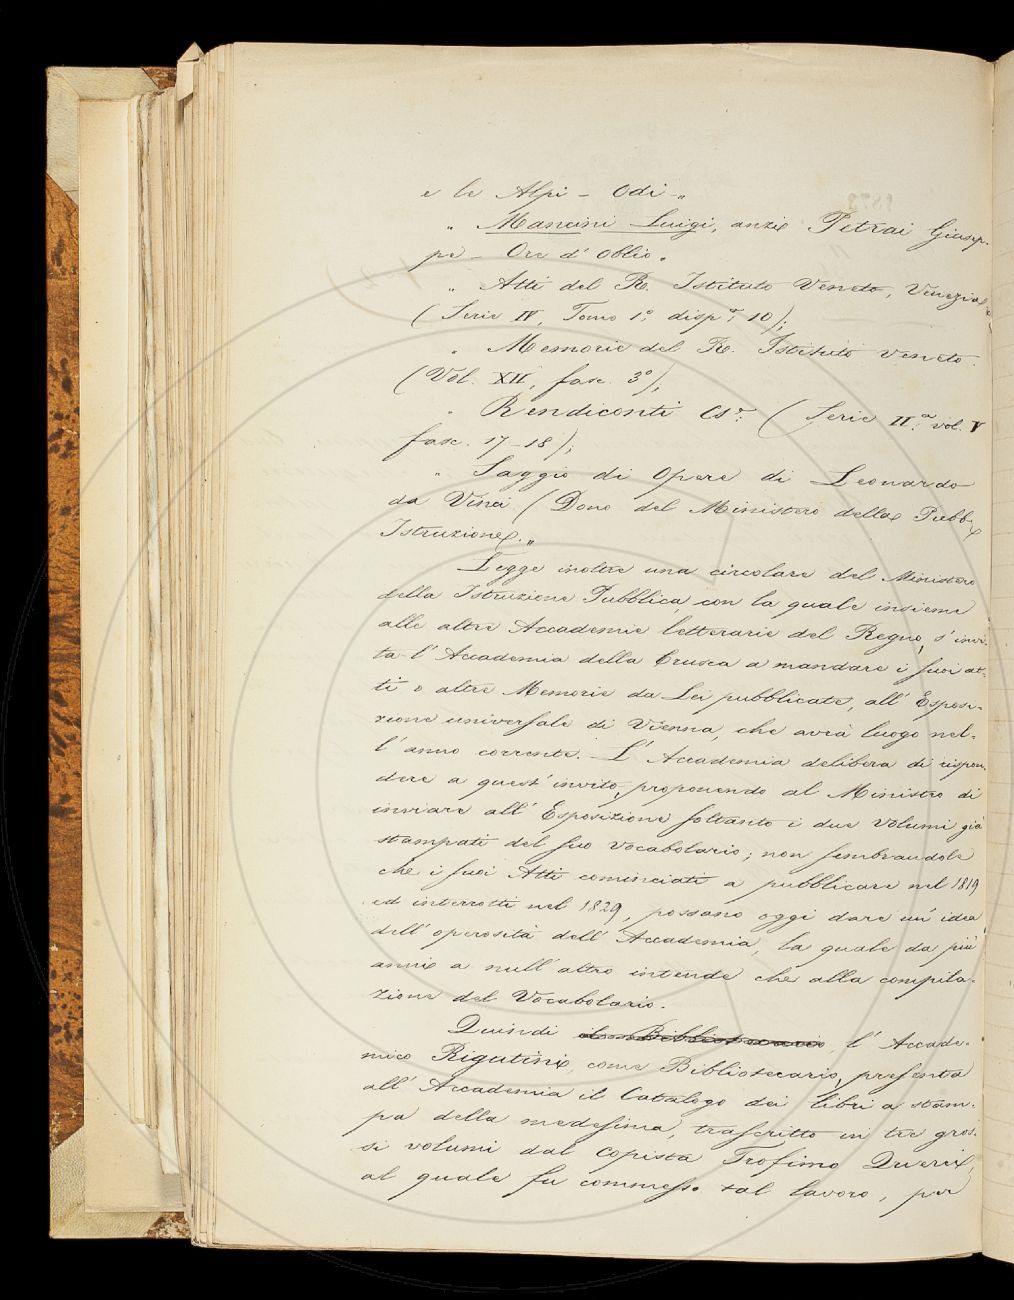 e le Alpi – Odi –„
„ Mancini Luigi, anzi Petrai Giusep-
pe – Ore d'oblio.
„ Atti del R. Istituto Veneto, Venezia
(Serie IV, Tomo 1°, disp.ª 10);
„ Memorie del R. Istituto Veneto.
(Vol. XII, fasc. 3°);
„ Rendiconti (Serie II.ª vol. V
fasc. 17–18);
„ Saggio di Opere di Leonardo
da Vinci (Dono del Ministero della Pubb.
Istruzione.„
Legge inoltre una circolare del Ministero
della Istruzione Pubblica, con la quale insieme
alle altre Accademie letterarie del Regno, s'invi-
ta l'Accademia della Crusca a mandare i suoi at-
ti o altre Memorie da Lei pubblicate, all'Esposi-
zione universale di Vienna, che avrà luogo nel-
l'anno corrente. – L'Accademia delibera di rispon-
dere a quest'invito, proponendo al Ministro di
inviare all'Esposizione soltanto i due Volumi già
stampati del suo Vocabolario; non sembrandole
che i suoi Atti cominciati a pubblicare nel 1819
ed interrotti nel 1829, possano oggi dare un'idea
dell'operosità dell'Accademia, la quale da più
anni a null'altro intende che alla compila-
zione del Vocabolario.
Quindi il Bibliotecario, l'Accade-
mico Rigutini, come Bibliotecario, presenta
all'Accademia il Catalogo dei libri a stam-
pa della medesima, trascritto in tre gros-
si volumi dal Copista Trofimo
al quale fu commesso tal lavoro, per